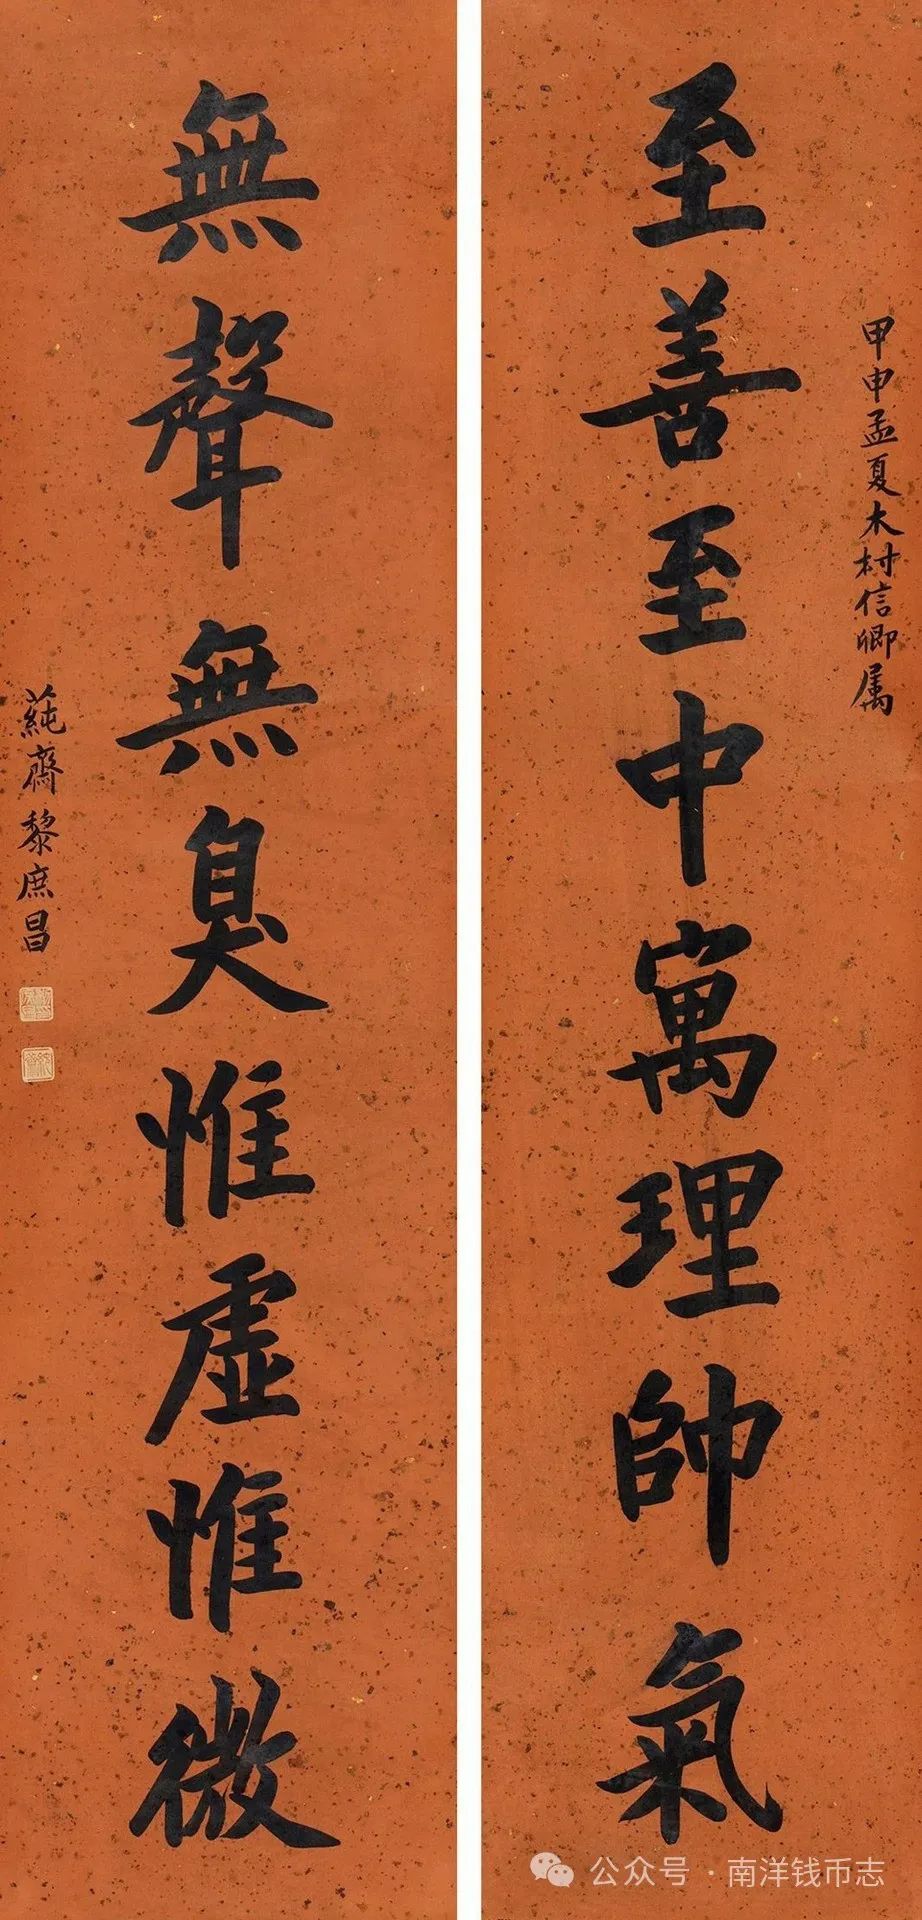 甲申孟夏木村信卿属
至善至中寓理帥氣
無聲無臭惟虛惟微
蒓齋黎庶昌
公众号·南洋钱币志